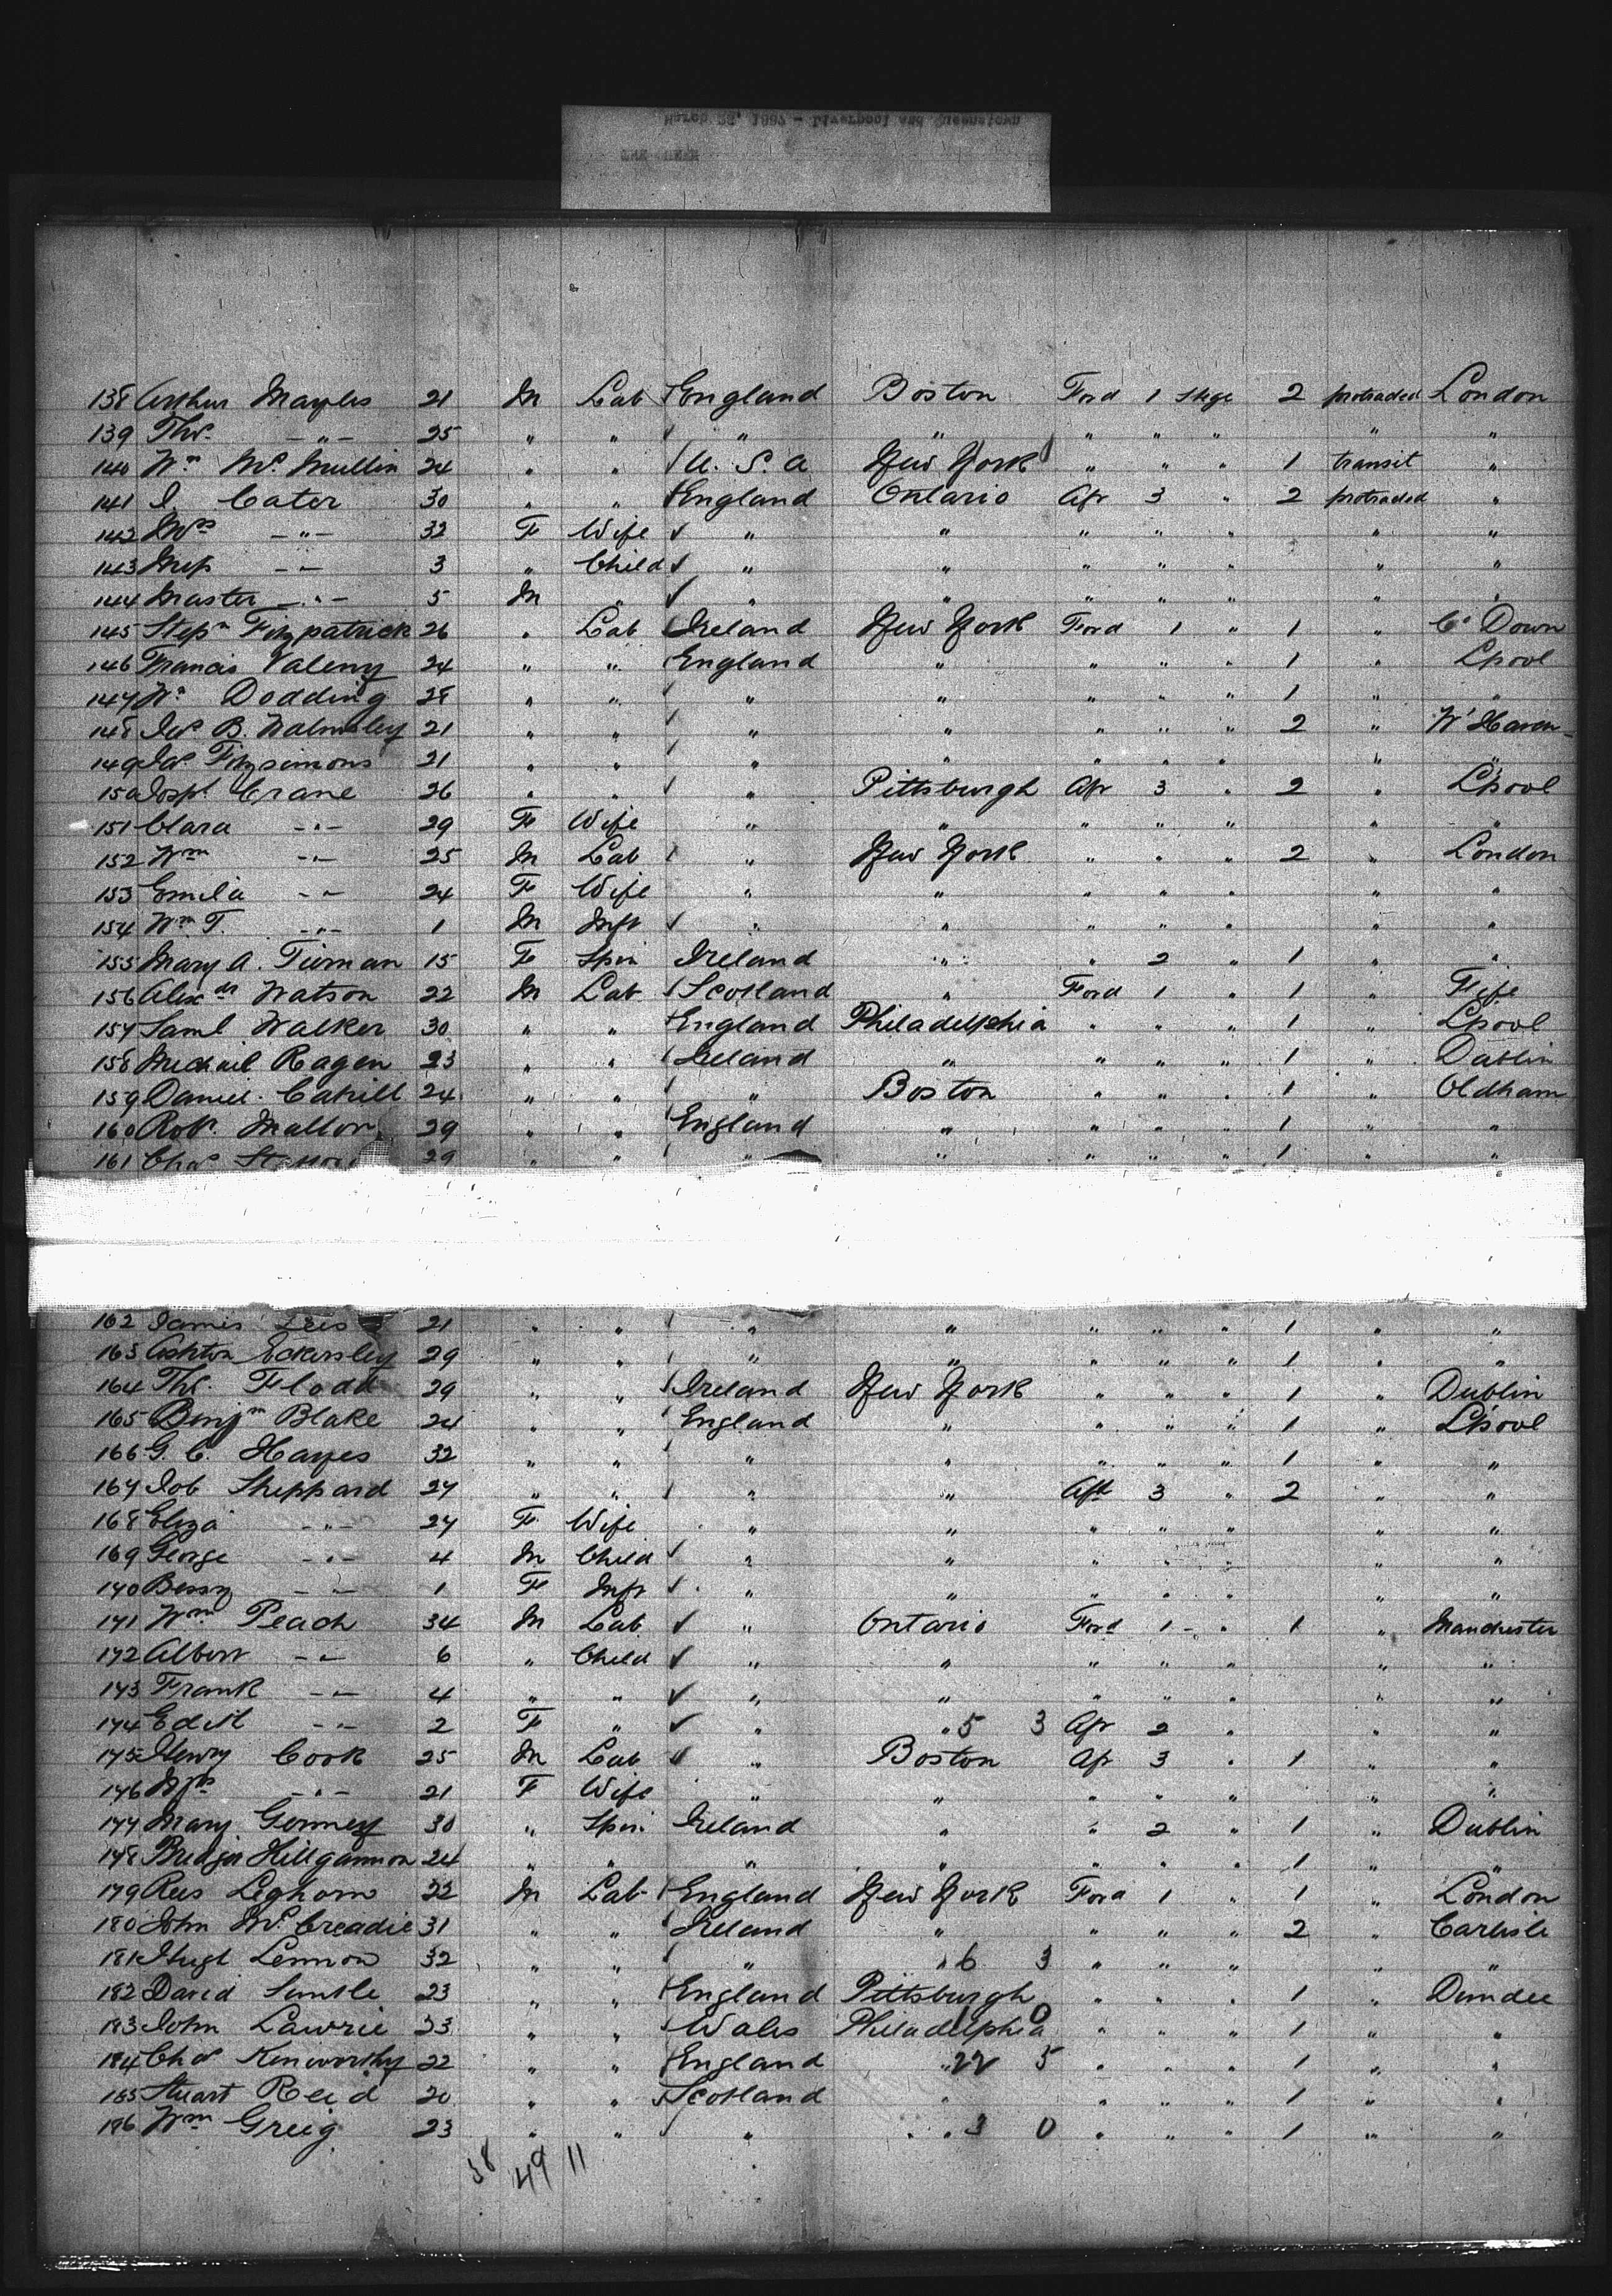 138 Arthur Mayles 21 M Lab England Boston Ford 1 Stge 2 protraded London
139 Thos. -"- 25 " " " " " " " " "
140 Wm McMullin 24 " " U. S. A New York " " " 1 transit "
141 J Cater 30 " " England Ontario Afr 3 " 2 protraded "
142 Mrs -"- 32 F Wife " " " " " " "
143 Miss -"- 3 " Child " " " " " " "
144 Master -"- 5 M " " " " " " " "
145 Stepn Fitzpatrick 26 " Lab Ireland New York Ford 1 " 1 " Co Down
146 Francis Valeny 24 " " England " " " " 1 " Lpool
147 Wm Dodding 28 " " " " " " " 1 " "
148 Jas B. Walmsley 21 " " " " " " " 2 " W'Haven
149 Jas. Fitzsimons 21 " " " " " " " " "
150 Josph Crane 26 " " " Pittsburgh Afr 3 " 2 " L'pool
151 Clara -"- 29 F Wife " " " " " " "
152 Wm -"- 25 M Lab " New York " " " 2 " London
153 Emila -"- 24 F Wife " " " " " " "
154 Wm T. -"- 1 M Inft " " " " " " "
155 Mary A. Tiernan 15 F Spin Ireland " " 2 " 1 " "
156 Alexdr Watson 22 M Lab Scotland " Ford 1 " 1 " Fife
157 Saml Walker 30 " " England Philadelphia " " " 1 " Lpool
158 Michael Ragen 23 " " Ireland " " " " 1 " Dublin
159 Daniel Cahill 24 " " " Boston " " " 1 " Oldham
160 Robt. Mallor 29 " " England " " " " 1 " "
161 Chas 29 " " " " " " " 1 " "
162 James Lees 21 " " " " " " " 1 " "
163 Ashton Eckersley 29 " " " " " " " 1 " "
164 Thos. Flodd 29 " " Ireland New York " " " 1 " Dublin
165 Benjn Blake 24 " " England " " " " 1 " L'pool
166 G. C. Hayes 32 " " " " " " " 1 " "
167 Job Sheppard 27 " " " " Aft 3 " 2 " "
168 Eliza -"- 27 F Wife " " " " " " "
169 George -"- 4 M Child " " " " " " "
170 Bessy -"- 1 F Inft " " " " " " "
171 Wm Peach 34 M Lab " Ontario Ford 1 " 1 " Manchester
172 Albert -"- 6 " Child " " " " " " "
173 Frank -"- 4 " " " " " " " " "
174 Edith -"- 2 F " " " 5 3 Afr 2 " " "
175 Henry Cook 25 M Lab " Boston Afr 3 " 1 " "
176 Mrs -"- 21 F Wife " " " " " " "
177 Mary Gormey 30 " Spin Ireland " " 2 " 1 " Dublin
178 Bridget Hillgannon 24 " " " " " " " 1 " "
179 Rees Leghorn 22 M Lab England New York Ford 1 " 1 " London
180 John McCreadie 31 " " Ireland " " " " 2 " Carlisle
181 Hugh Lennon 32 " " " " 6 3 " " " " "
182 David 23 " " England Pittsburgh " " " 1 " Dundee
183 John Lawrie 23 " " Wales Philadelphia 0 " " " 1 " "
184 Chas Kenworthy 22 " " England " 22 5 " " " 1 " "
185 Stuart Reid 20 " " Scotland " " " " 1 " "
186 Wm Greig 23 " " " " 3 0 " " " 1 " "
38 49 11